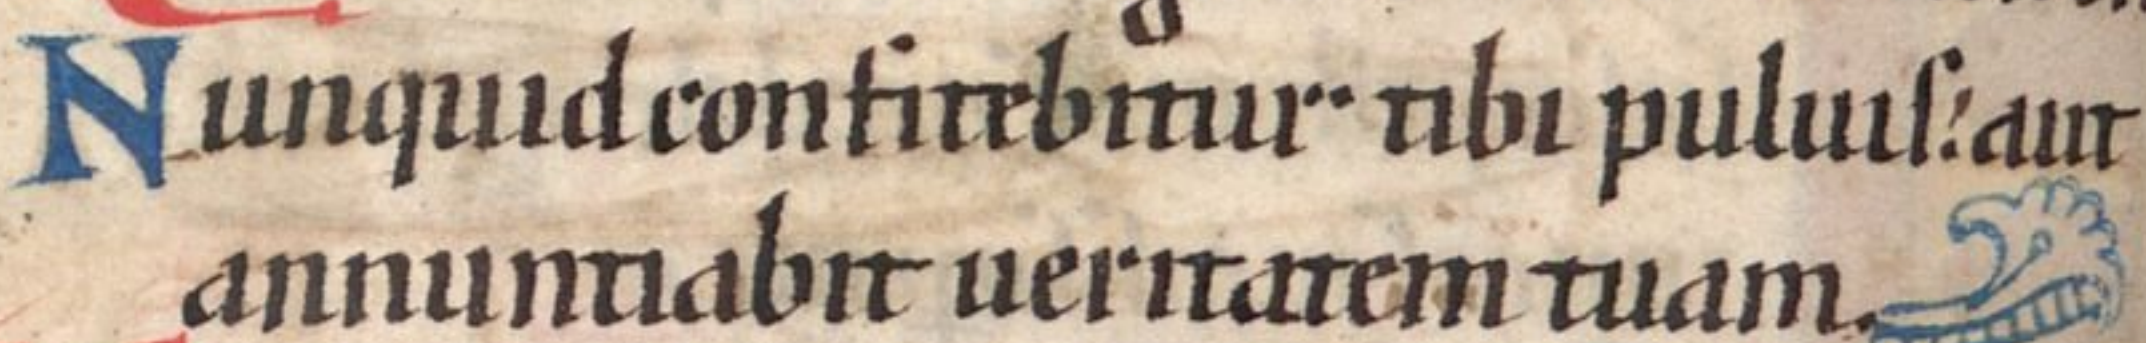 Nunquid confitebitur tibi puluis: aut
annuntiabit ueritatem tuam.